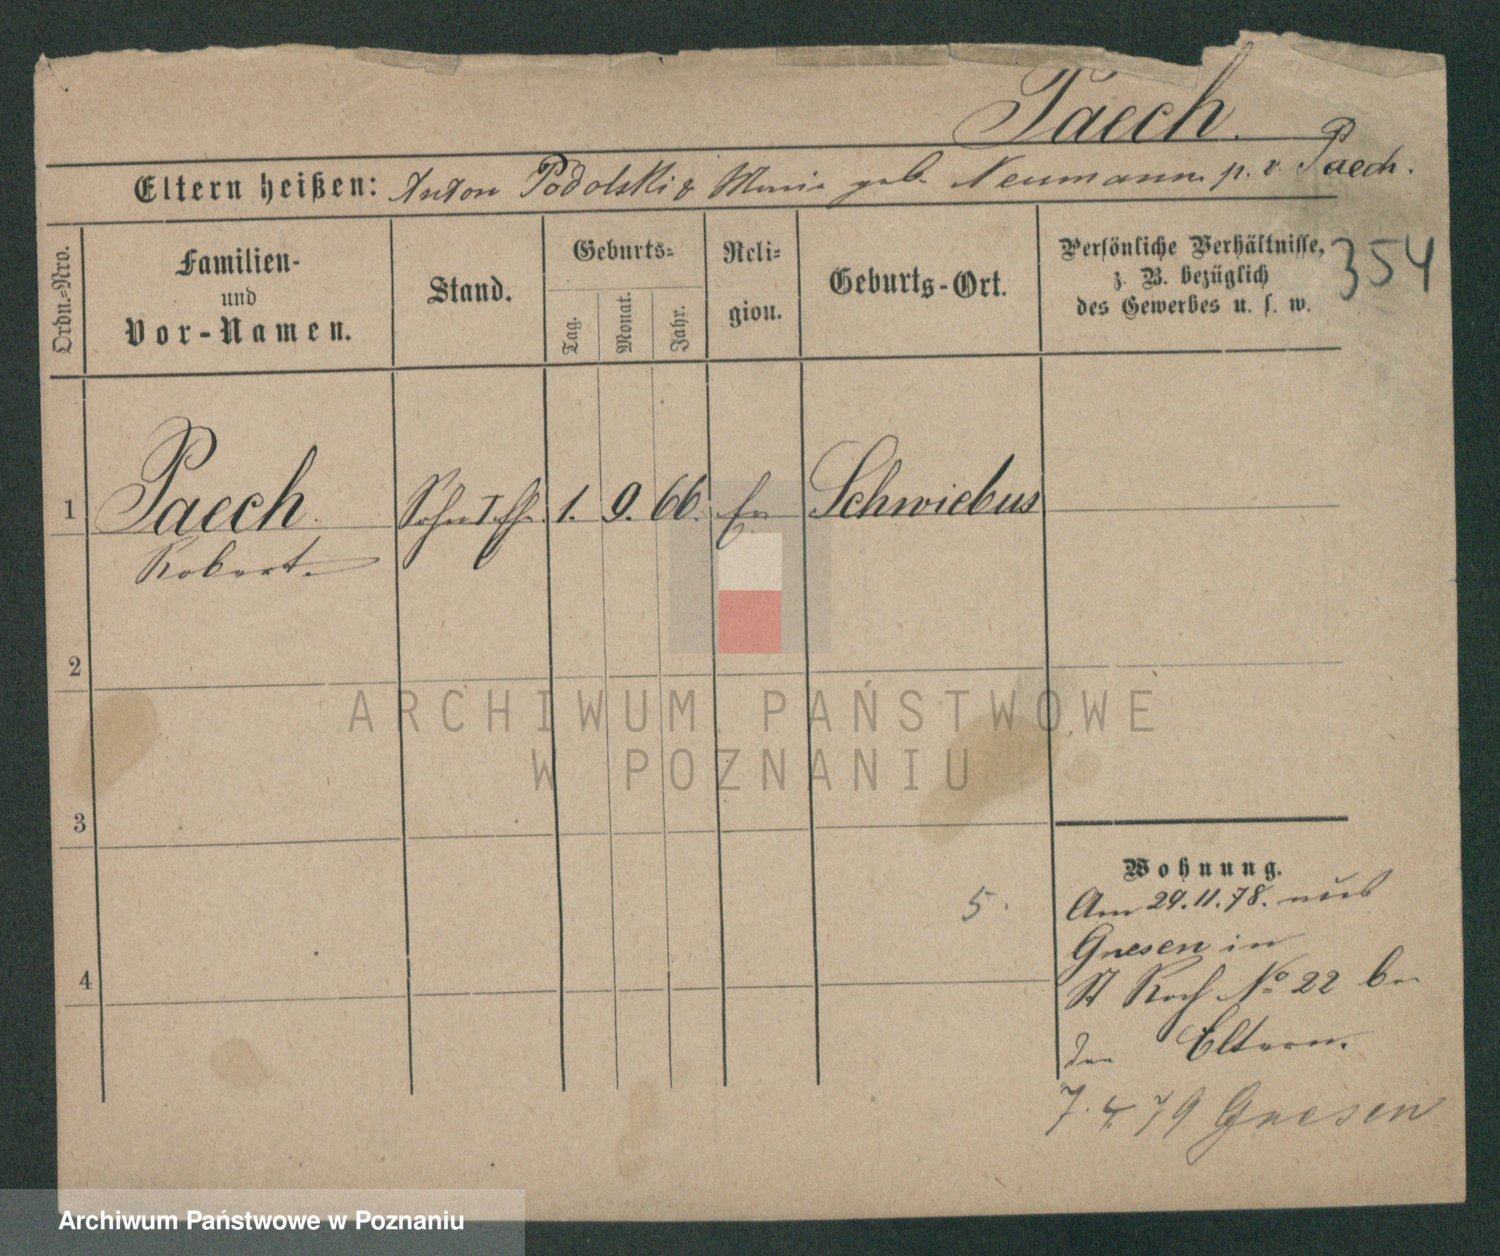 Paech.
Eltern heißen: Anton Podolski & Marie geb. Neumann p. v. Paech.
354
Ordn.=Nro.
Familien-
und
Vor-Namen.
Stand.
Geburts=
Tag.
Monat.
Jahr.
Reli=
gion.
Geburts-Ort.
Persönliche Verhältnisse,
z. B. bezüglich
des Gewerbes u. s. w.
1 Paech. 1. 9. 66. Ev Schwiebus
Robert
2
ARCHIWUM PAŃSTWOWE
W POZNANIU
3
Wohnung.
5.
Am 29.11.78. aus
Gnesen in
4
St Roch No 22 bei
den Eltern.
7. 4. 79 Gnesen
Archiwum Państwowe w Poznaniu